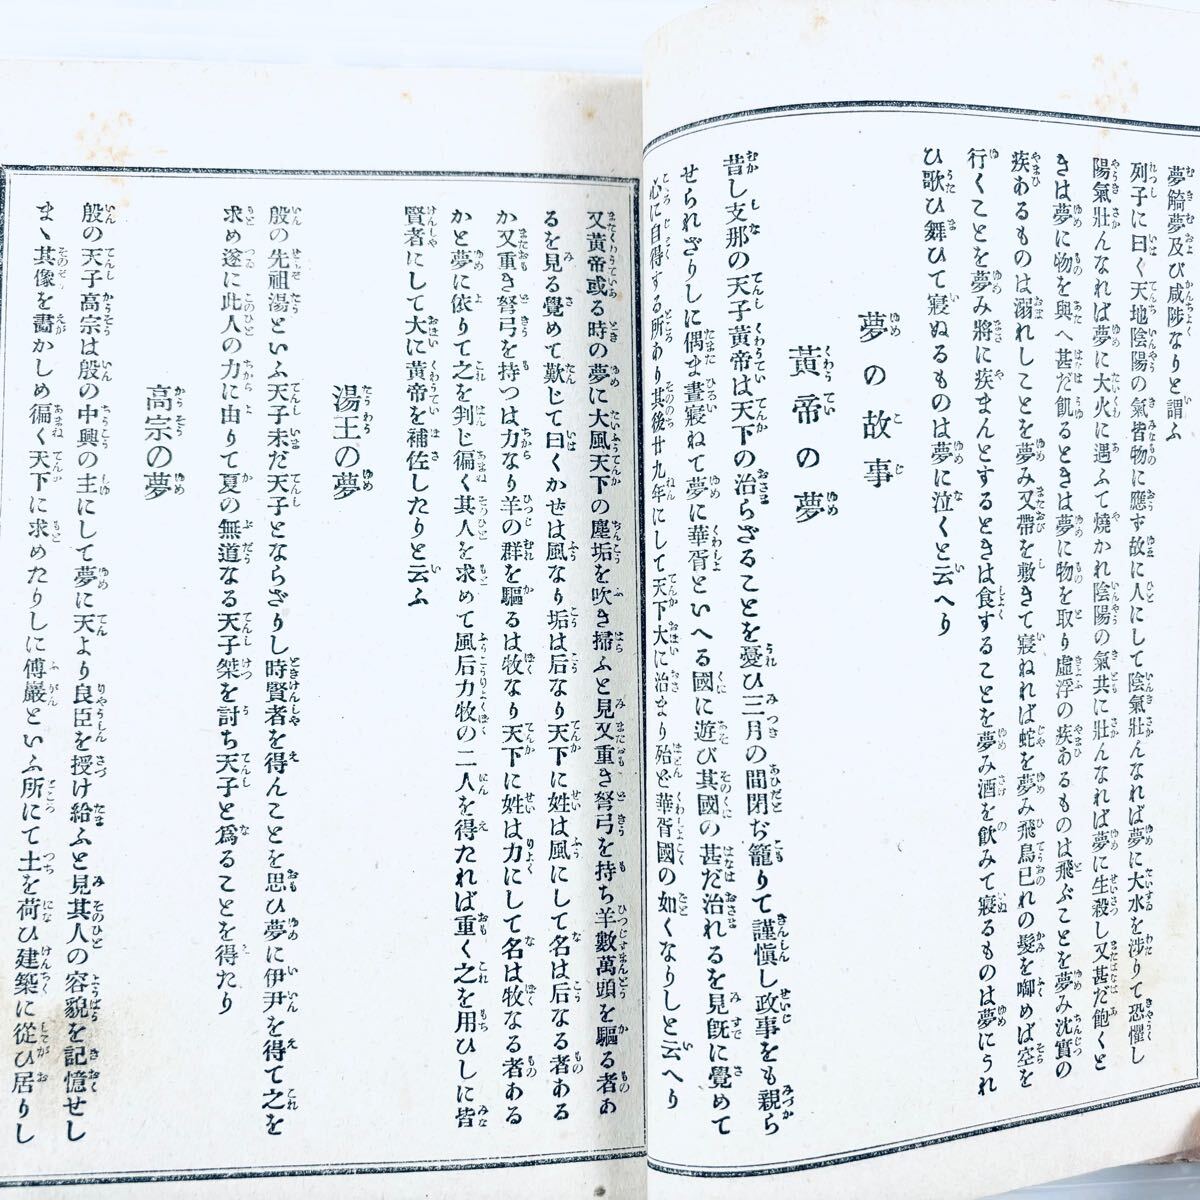 夢觭夢及び咸陟なりと謂ふ
列子に曰く天地陰陽の氣皆物に應す故に人にして陰氣壯んなれば夢に大水を渉りて恐懼し
陽氣壯んなれば夢に大火に遇ふて燒かれ陰陽の氣共に壯んなれば夢に生殺し又甚だ飽くと
きは夢に物を與へ甚だ飢るときは夢に物を取り虚浮の疾あるものは飛ぶことを夢み沈實の
疾あるものは溺れしことを夢み又帶を敷きて寢ぬれば蛇を夢み飛鳥已れの髮を啣めば空を
行くことを夢み將に疾まんとするときは食することを夢み酒を飮みて寢るものは夢にうれ
ひ歌ひ舞ひて寢ぬるものは夢に泣くと云へり
夢の故事
黃帝の夢
昔し支那の天子黃帝は天下の治らざることを憂ひ三月の間閉ぢ籠りて謹愼し政事をも親ら
せられざりしに偶ま晝寢ねて夢に華胥といへる國に遊び其國の甚だ治れるを見旣に覺めて
心に自得する所あり其後廿九年にして天下大に治まり殆ど華胥國の如くなりしと云へり
又黃帝或る時の夢に大風天下の塵垢を吹き掃ふと見又重き弩弓を持ち羊數萬頭を驅る者あ
るを見る覺めて歎じて曰くかせは風なり垢は后なり天下に姓は風にして名は后なる者ある
か又重き弩弓を持つは力なり羊の群を驅るは牧なり天下に姓は力にして名は牧なる者ある
かと夢に依りて之を判じ徧く其人を求めて風后力牧の二人を得たれば重く之を用ひしに皆
賢者にして大に黃帝を補佐したりと云ふ
湯王の夢
殷の先祖湯といふ天子未だ天子とならざりし時賢者を得んことを思ひ夢に伊尹を得て之を
求め遂に此人の力に由りて夏の無道なる天子桀を討ち天子と爲ることを得たり
高宗の夢
殷の天子高宗は殷の中興の主にして夢に天より良臣を授け給ふと見其人の容貌を記憶せし
まゝ其像を畵かしめ徧く天下に求めたりしに傅巖といふ所にて土を荷ひ建築に從ひ居りし